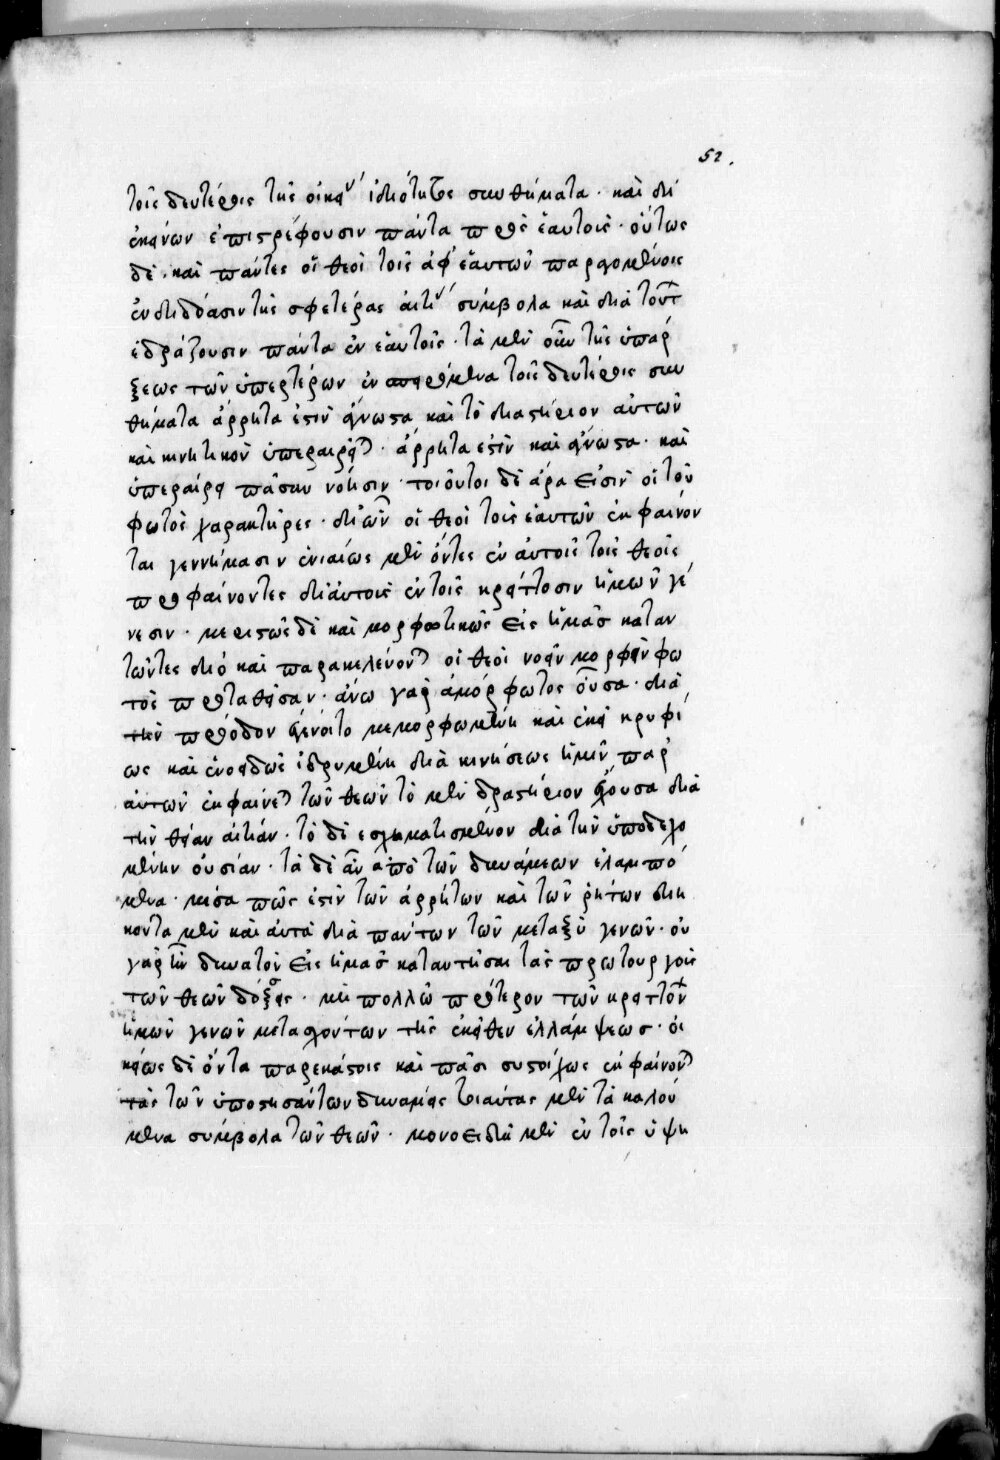 52.
τοῖς δευτέροις τῆς οἰκείας ἰδιότητος συνθήματα· καὶ δι'
ἐκείνων ἐπιστρέφουσιν πάντα πρὸς ἑαυτοὺς· οὕτως
δὲ καὶ πάντες οἱ θεοὶ τοῖς ἀφ' ἑαυτῶν παραγομένοις
ἐνδιδόασιν τῆς σφετέρας αἰτίας σύμβολα καὶ διὰ τούτων
ἑδράζουσιν πάντα ἐν ἑαυτοῖς· τὰ μὲν οὖν τῆς ὑπάρ
ξεως τῶν ὑπερτέρων ἐν σπειρόμενα τοῖς δευτέροις συν
θήματα ἄρρητα ἐστὶν ἄγνωστα καὶ τὸ δραστήριον αὐτῶν
καὶ κινητικὸν ὑπεραίρει· ἄρρητα ἐστὶν καὶ ἄγνωστα· καὶ
ὑπεραίρει πᾶσαν νόησιν· τοιοῦτοι δὲ ἄρα εἰσὶν οἱ τοῦ
φωτὸς χαρακτῆρες· δι' ὧν οἱ θεοὶ τοῖς ἑαυτῶν ἐκφαίνον
ται γεννήμασιν ἑνιαίως μὲν ὄντες ἐν αὐτοῖς τοῖς θεοῖς
προφαίνοντες δὲ αὐτοὺς ἐν τοῖς κρείττοσιν ἡμῶν γέ
νεσιν· μεριστῶς δὲ καὶ μορφωτικῶς εἰς ἡμᾶς καταν
τῶντες διὸ καὶ παρακελεύονται οἱ θεοὶ νοεῖν μορφὴν φω
τὸς προταθεῖσαν· ἄνω γὰρ ἀμόρφωτος οὖσα· διὰ
τὴν πρόοδον ἐγένετο μεμορφωμένη καὶ ἐκεῖ κρυφί
ως καὶ ἑνοειδῶς ἱδρυμένη διὰ κινήσεως ἡμῖν παρ'
αὐτῶν ἐκφαίνεται τῶν θεῶν τὸ μὲν δραστήριον ἔχουσα διὰ
τὴν θείαν αἰτίαν· τὸ δὲ ἐσχηματισμένον διὰ τὴν ὑποδεχο
μένην οὐσίαν· τὰ δὲ αὖ ἀπὸ τῶν δυνάμεων ἐλλαμπό
μενα· μέσα πως ἐστὶν τῶν ἀρρήτων καὶ τῶν ῥητῶν διη
κοντα μὲν καὶ αὐτὰ διὰ πάντων τῶν μεταξὺ γενῶν· οὐ
γὰρ ἦν δυνατὸν εἰς ἡμᾶς καταντῆσαι τὰς πρωτουργοὺς
τῶν θεῶν δόξας· μὴ πολλῷ πρότερον τῶν κρειττόνων
ἡμῶν γενῶν μετασχόντων τῆς ἐκεῖθεν ἐλλάμψεως· οἰ
κείως δὲ ὄντα παρ ἑκάστοις καὶ πᾶσι συστοίχως ἐκφαίνονται
τὰς τῶν ὑποστησάντων δυνάμεις τοιαῦτα μὲν τὰ καλού
μενα σύμβολα τῶν θεῶν· μονοειδῆ μὲν ἐν τοῖς ὑψη